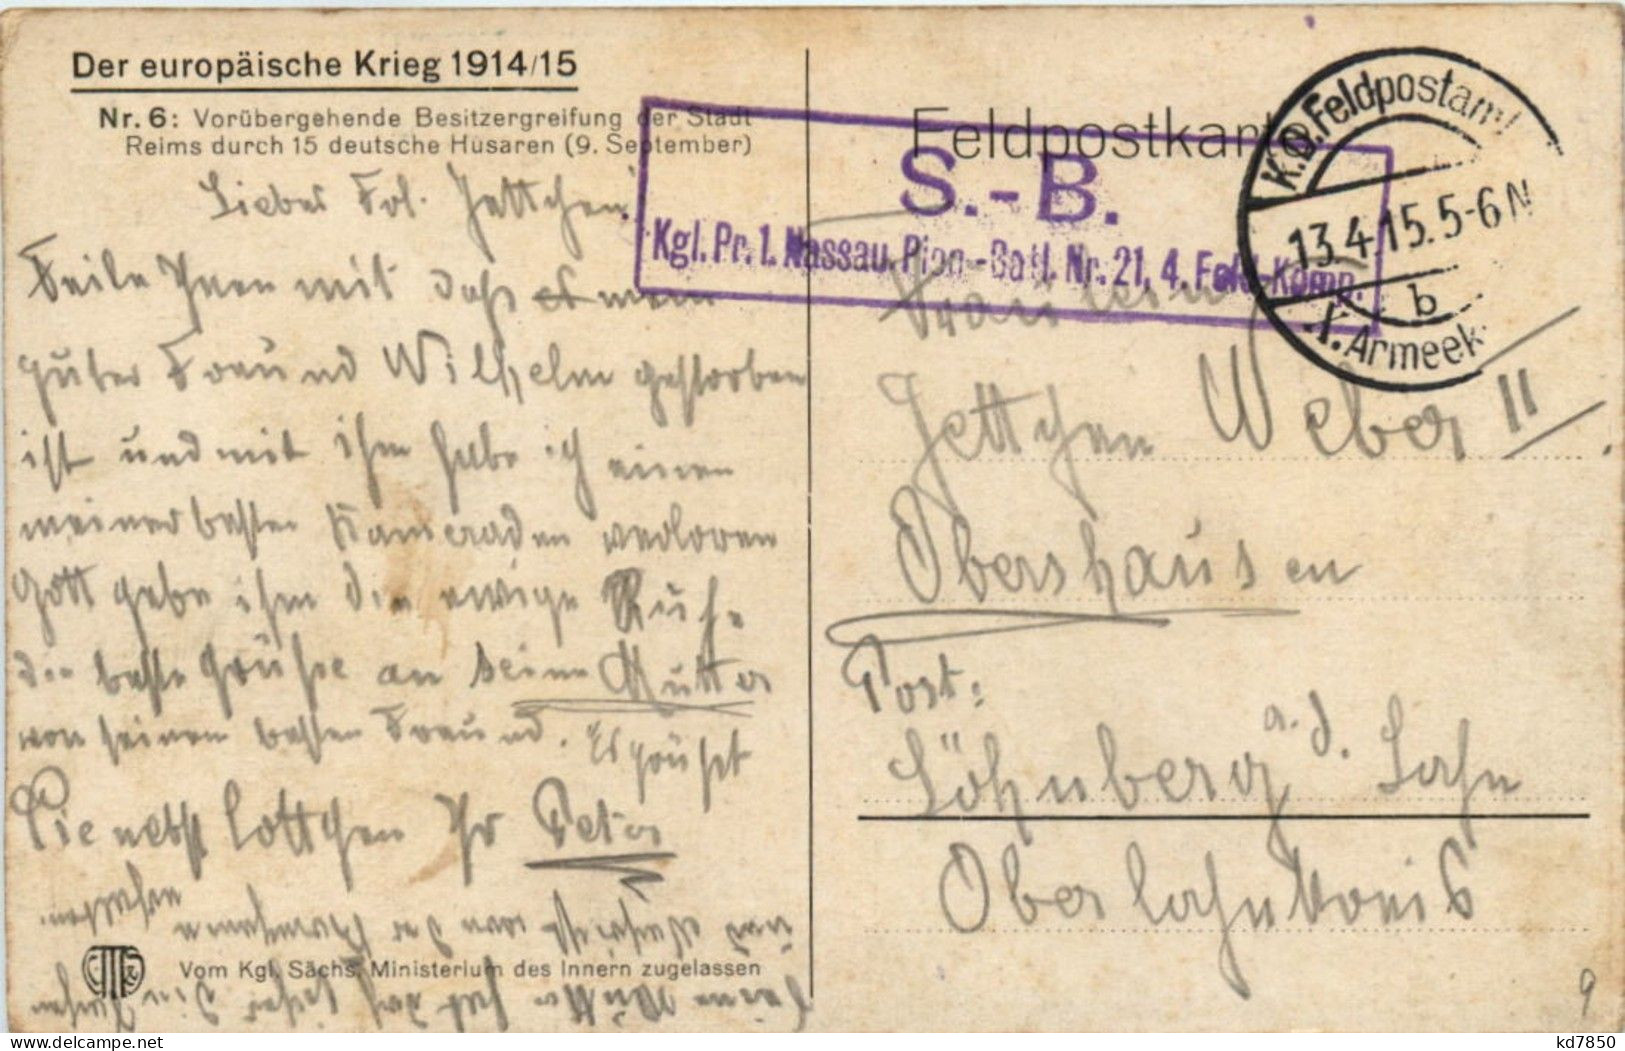 Der europäische Krieg 1914/15
Nr. 6: Vorübergehende Besitzergreifung der Stadt
Reims durch 15 deutsche Husaren (9. September)
Liebes Frl. Jettchen!
Teile Ihnen mit daß mein
guter Freund Wilhelm gestorben
ist und mit ihm habe ich einen
meiner besten Kameraden verloren
Gott gebe ihm die ewige Ruh.
die beste Grüße an seine Mutter
von seinem besten Freund. Es grüßt
Sie nebst Lottchen Ihr Peter
Vom Kgl. Sächs. Ministerium des Innern zugelassen
Feldpostkarte
S.-B.
Kgl. Pr. 1. Nassau. Pion.-Batl. Nr. 21, 4. Feld-Komp.
K.D. Feldpostamt
13.4.15.5-6N
b
Armeek.
Fräulein
Jettchen Weber II
Obershausen
Post:
Löhnberg a. d. Lahn
Oberlahnkreis
9
kd7850